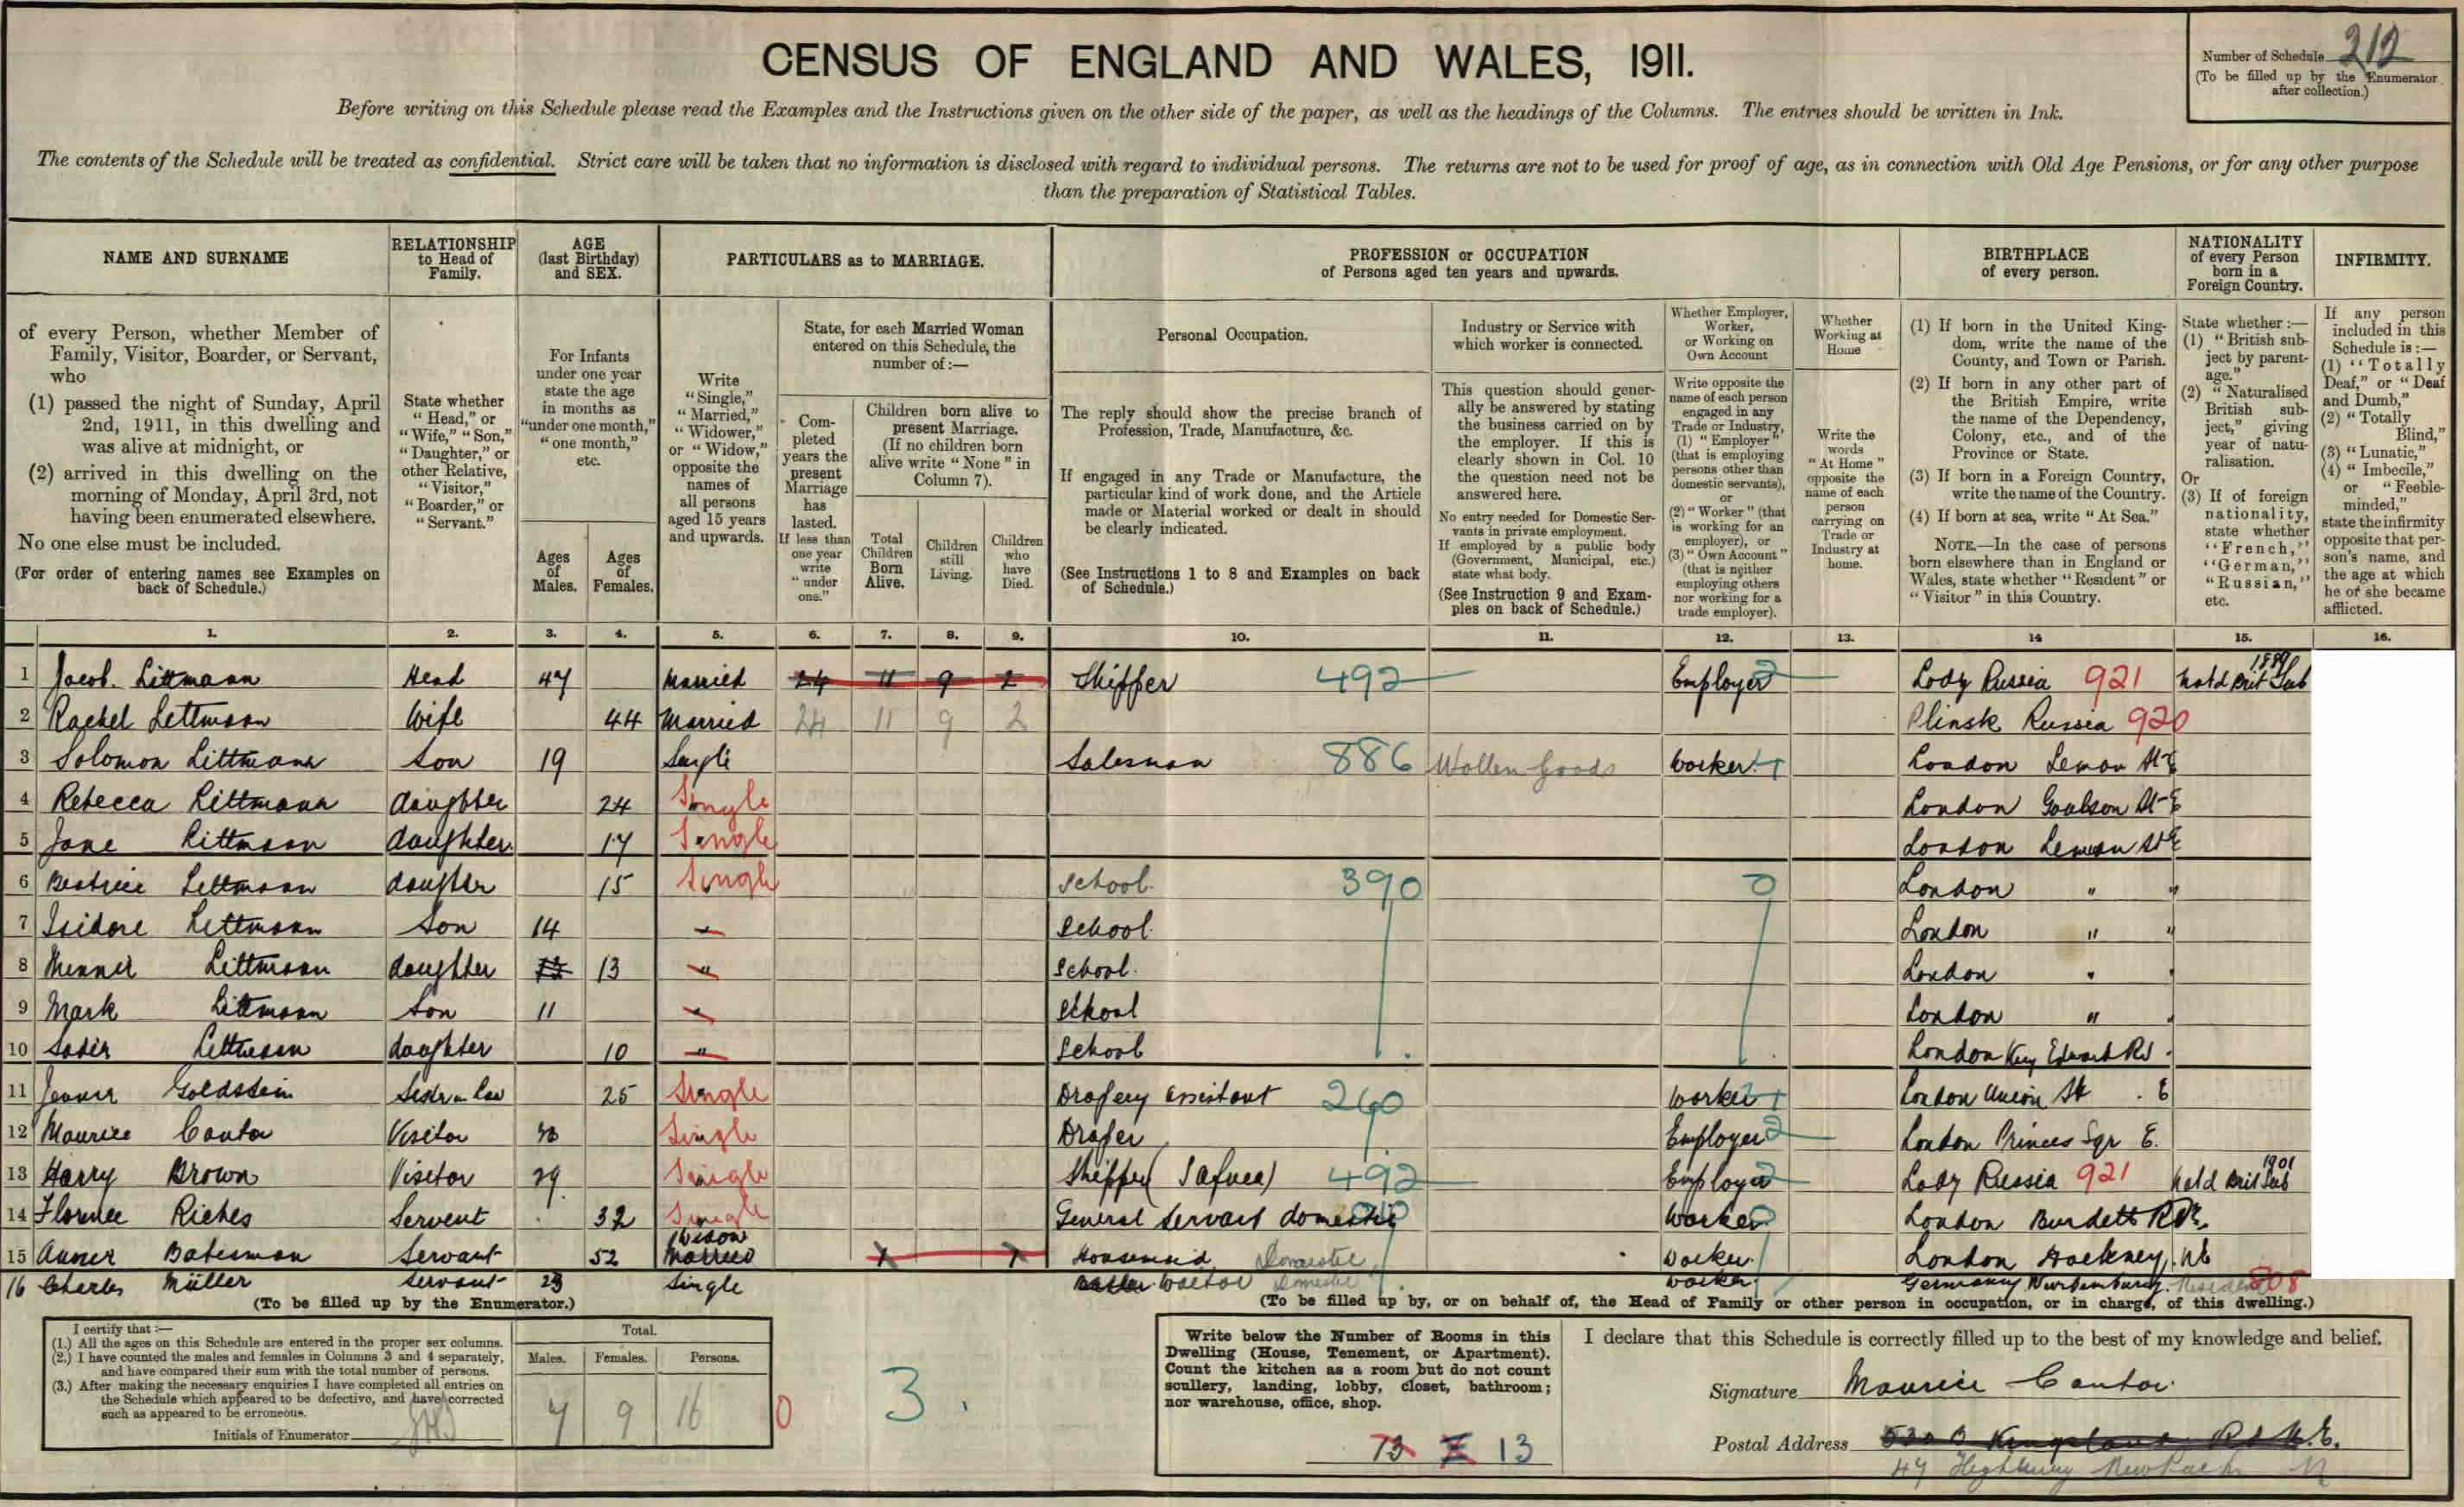 CENSUS OF ENGLAND AND WALES, 1911.
Number of Schedule 212
(To be filled up by the Enumerator after collection.)
Before writing on this Schedule please read the Examples and the Instructions given on the other side of the paper, as well as the headings of the Columns. The entries should be written in Ink.
The contents of the Schedule will be treated as confidential. Strict care will be taken that no information is disclosed with regard to individual persons. The returns are not to be used for proof of age, as in connection with Old Age Pensions, or for any other purpose
than the preparation of Statistical Tables.
NAME AND SURNAME
RELATIONSHIP to Head of Family.
AGE (last Birthday) and SEX.
PARTICULARS as to MARRIAGE.
PROFESSION or OCCUPATION
of Persons aged ten years and upwards.
BIRTHPLACE of every person.
NATIONALITY of every Person born in a Foreign Country.
INFIRMITY.
of every Person, whether Member of Family, Visitor, Boarder, or Servant, who
(1) passed the night of Sunday, April 2nd, 1911, in this dwelling and was alive at midnight, or
(2) arrived in this dwelling on the morning of Monday, April 3rd, not having been enumerated elsewhere.
No one else must be included.
(For order of entering names see Examples on back of Schedule.)
State whether "Head," or "Wife," "Son," "Daughter," or other Relative, "Visitor," "Boarder," or "Servant."
For Infants under one year state the age in months as "under one month," "one month," etc.
Ages of Males.
Ages of Females.
Write "Single," "Married," "Widower," or "Widow," opposite the names of all persons aged 15 years and upwards.
State, for each Married Woman entered on this Schedule, the number of:—
Completed years the present Marriage has lasted. If less than one year write "under one."
Children born alive to present Marriage. (If no children born alive write "None" in Column 7).
Total Children Born Alive.
Children still Living.
Children who have Died.
Personal Occupation.
The reply should show the precise branch of Profession, Trade, Manufacture, &c.
If engaged in any Trade or Manufacture, the particular kind of work done, and the Article made or Material worked or dealt in should be clearly indicated.
(See Instructions 1 to 8 and Examples on back of Schedule.)
Industry or Service with which worker is connected.
This question should generally be answered by stating the business carried on by the employer. If this is clearly shown in Col. 10 the question need not be answered here.
No entry needed for Domestic Servants in private employment. If employed by a public body (Government, Municipal, etc.) state what body.
(See Instruction 9 and Examples on back of Schedule.)
Whether Employer, Worker, or Working on Own Account
Write opposite the name of each person engaged in any Trade or Industry, (1) "Employer" (that is employing persons other than domestic servants), or (2) "Worker" (that is working for an employer), or (3) "Own Account" (that is neither employing others nor working for a trade employer).
Whether Working at Home
Write the words "At Home" opposite the name of each person carrying on Trade or Industry at home.
(1) If born in the United Kingdom, write the name of the County, and Town or Parish.
(2) If born in any other part of the British Empire, write the name of the Dependency, Colony, etc., and of the Province or State.
(3) If born in a Foreign Country, write the name of the Country.
(4) If born at sea, write "At Sea."
NOTE.—In the case of persons born elsewhere than in England or Wales, state whether "Resident" or "Visitor" in this Country.
State whether:—
(1) "British subject by parentage."
(2) "Naturalised British subject," giving year of naturalisation.
Or
(3) If of foreign nationality, state whether "French," "German," "Russian," etc.
If any person included in this Schedule is:—
(1) "Totally Deaf," or "Deaf and Dumb,"
(2) "Totally Blind,"
(3) "Lunatic,"
(4) "Imbecile," or "Feeble-minded,"
state the infirmity opposite that person's name, and the age at which he or she became afflicted.
1. 2. 3. 4. 5. 6. 7. 8. 9. 10. 11. 12. 13. 14 15. 16.
1 Jacob Littmann Head 47 Married 24 11 9 2 Shipper 492 Employer 2 Lody Russia 921 Natd Brit Sub
2 Rachel Littmann Wife 44 Married 24 11 9 2 Plinsk Russia 920
3 Solomon Littmann Son 19 Single Salesman 886 Wollen Goods Worker London Leman St E
4 Rebecca Littmann daughter 24 Single London Goulson St E
5 Jane Littmann daughter 17 Single London Leman St E
6 Beatrice Littmann daughter 15 Single School 390 0 London " "
7 Isidore Littmann Son 14 School London " "
8 Littmann daughter 13 School London " "
9 Mark Littmann Son 11 School London " "
10 Sadie Littmann daughter 10 School London King Edward Rd
11 Goldstein Sister in law 25 Single Drapery assistant 260 Worker London Union St E
12 Maurice Cantor Visitor Single Draper Employer 2 London Princes Sqr E.
13 Harry Brown Visitor 29 Single Shipper 492 Employer 2 Lody Russia 921 Natd Brit Sub 1901
14 Florence Riches Servent 32 Single General Servant domestic Worker London Burdett Rd E.
15 Bateman Servant 52 Widow Married Housemaid Domestic Worker London Hackney NE
16 Charles Müller Servant 23 Single Domestic Worker Germany Resident 808
(To be filled up by the Enumerator.)
(To be filled up by, or on behalf of, the Head of Family or other person in occupation, or in charge, of this dwelling.)
I certify that:—
(1.) All the ages on this Schedule are entered in the proper sex columns.
(2.) I have counted the males and females in Columns 3 and 4 separately, and have compared their sum with the total number of persons.
(3.) After making the necessary enquiries I have completed all entries on the Schedule which appeared to be defective, and have corrected such as appeared to be erroneous.
Initials of Enumerator
Total.
Males. Females. Persons.
7 9 16 0
3.
Write below the Number of Rooms in this Dwelling (House, Tenement, or Apartment). Count the kitchen as a room but do not count scullery, landing, lobby, closet, bathroom; nor warehouse, office, shop.
13 13
I declare that this Schedule is correctly filled up to the best of my knowledge and belief.
Signature Maurice Cantor
Postal Address Kingsland Rd N.E.
47 Highbury New Park N